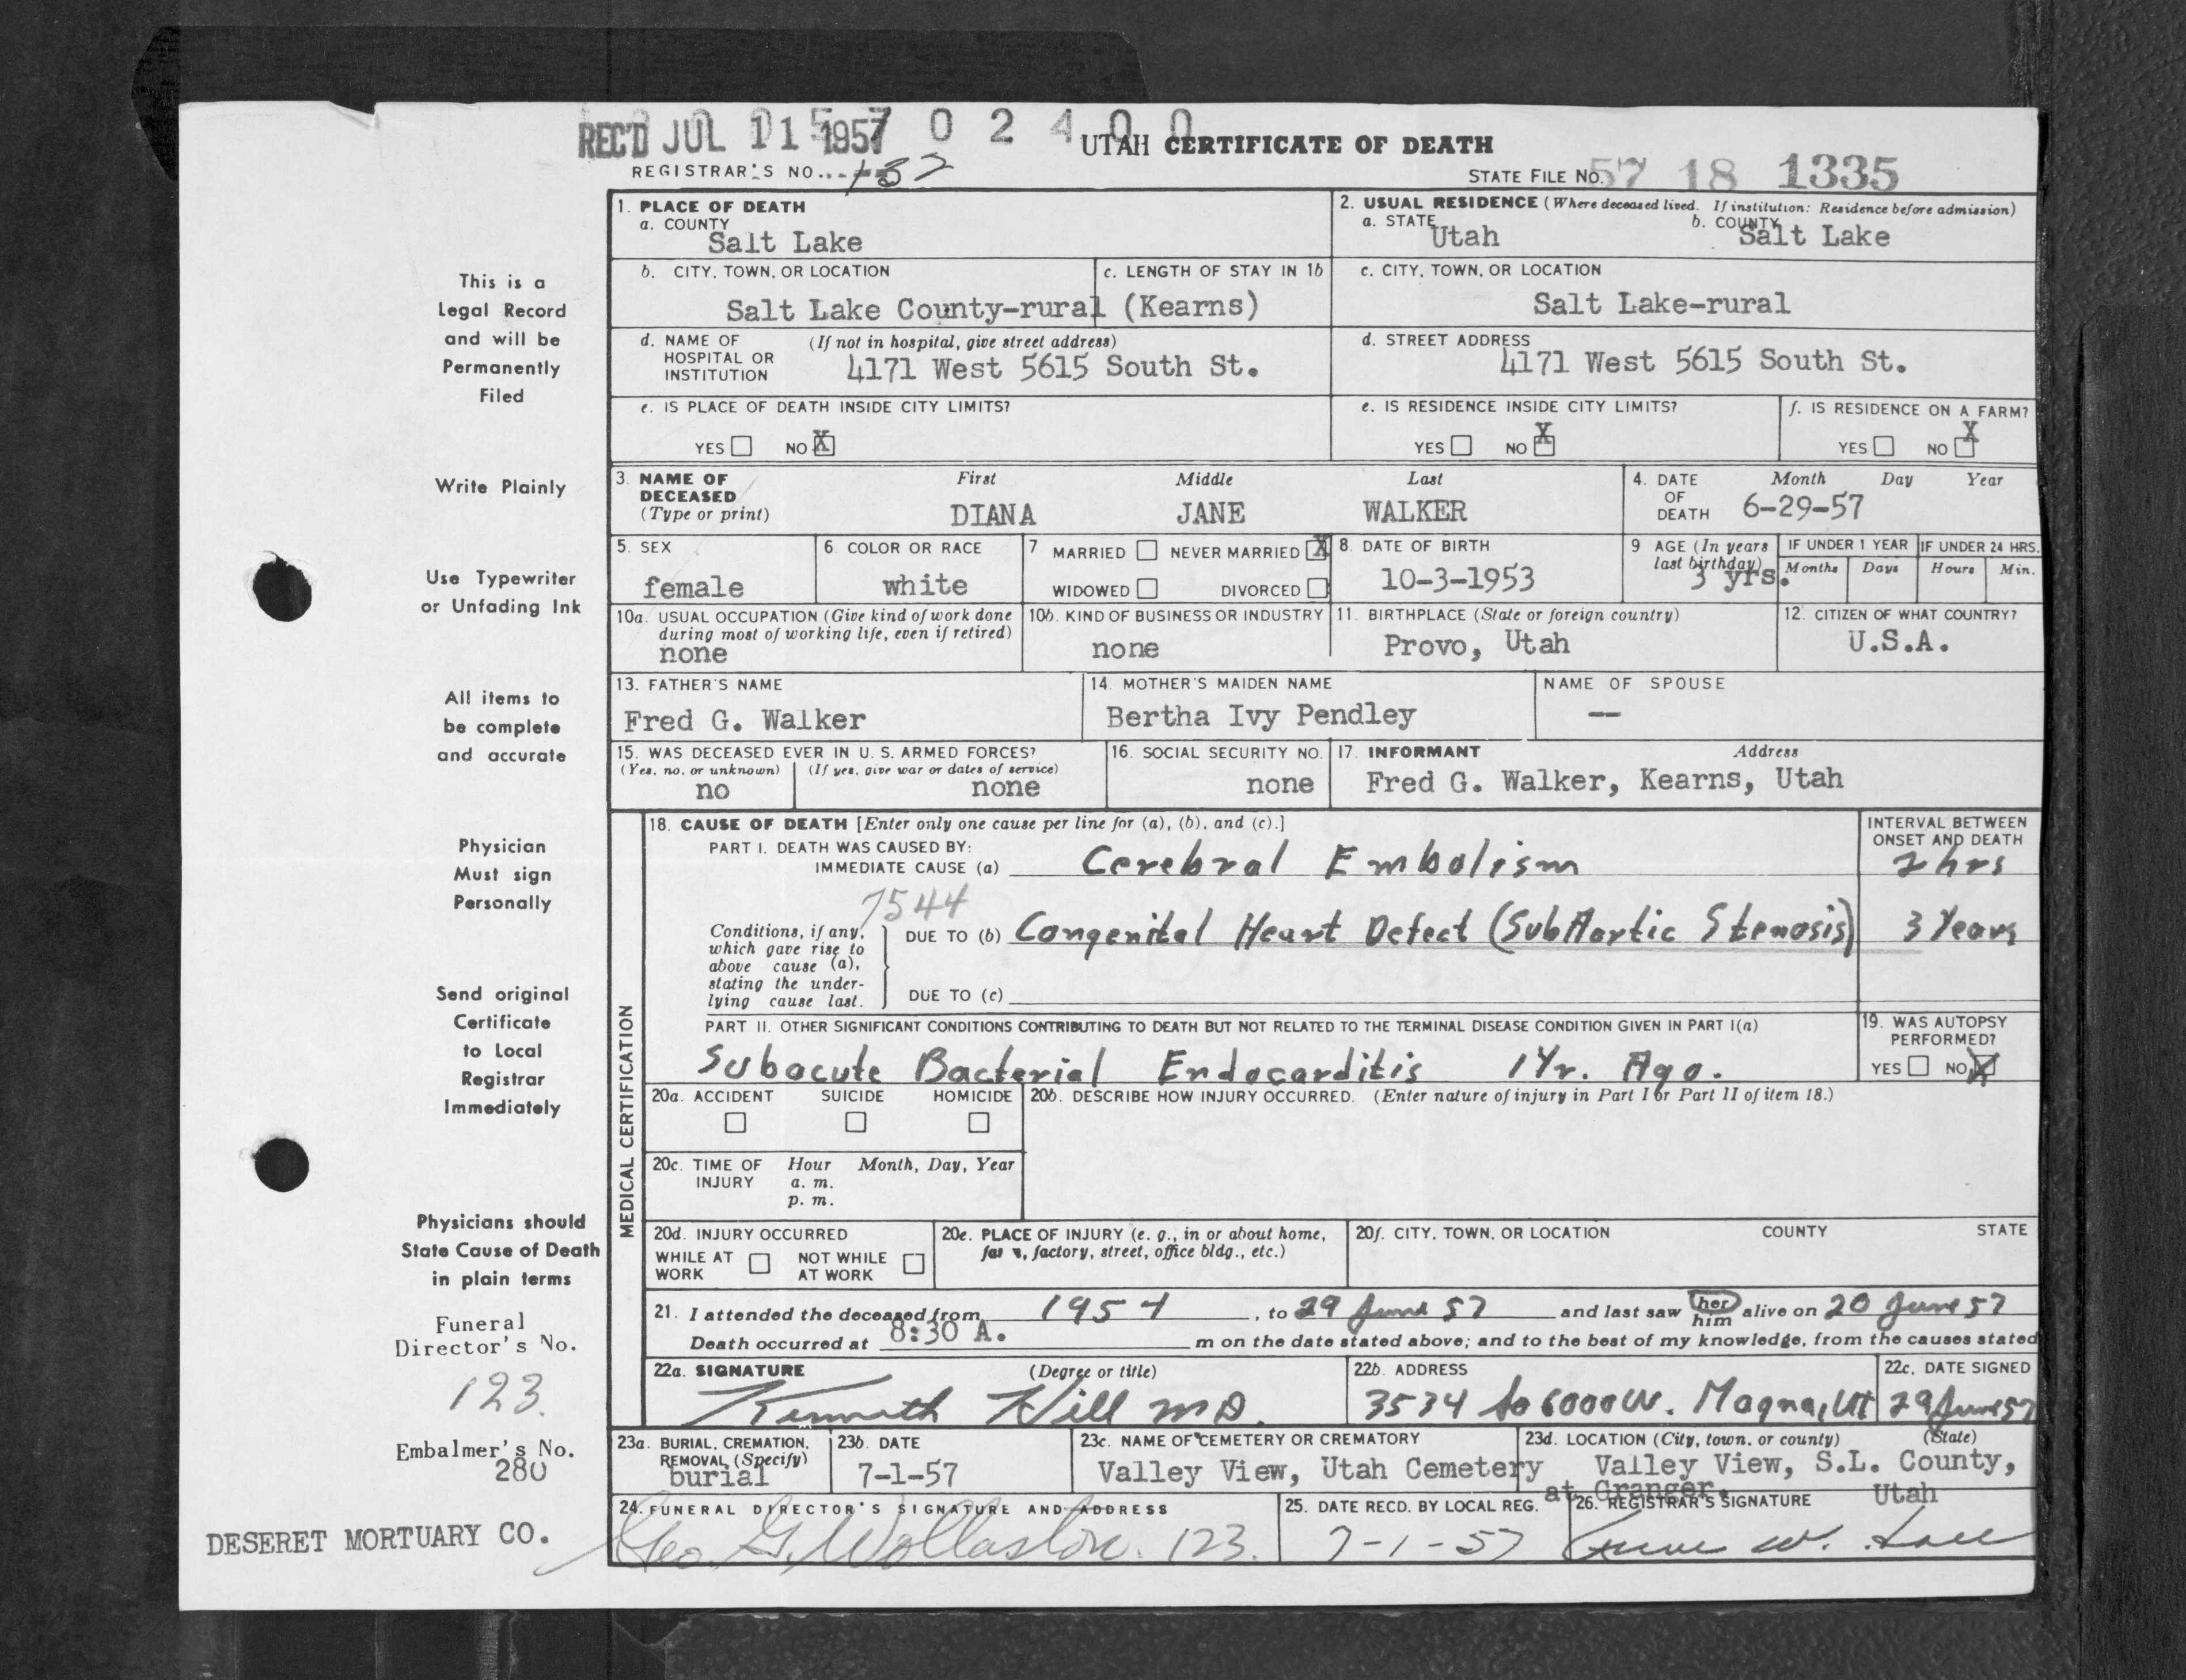 REC'D JUL 11 1957 0 2 4 0 0
UTAH CERTIFICATE OF DEATH
REGISTRAR'S NO. 132
STATE FILE NO. 57 18 1335
This is a
Legal Record
and will be
Permanently
Filed
Write Plainly
Use Typewriter
or Unfading Ink
All items to
be complete
and accurate
Physician
Must sign
Personally
Send original
Certificate
to Local
Registrar
Immediately
Physicians should
State Cause of Death
in plain terms
Funeral
Director's No.
123.
Embalmer's No.
280
DESERET MORTUARY CO.
1. PLACE OF DEATH
a. COUNTY
Salt Lake
2. USUAL RESIDENCE (Where deceased lived. If institution: Residence before admission)
a. STATE Utah b. COUNTY Salt Lake
b. CITY, TOWN, OR LOCATION c. LENGTH OF STAY IN 1b
Salt Lake County-rural (Kearns)
c. CITY, TOWN, OR LOCATION
Salt Lake-rural
d. NAME OF (If not in hospital, give street address)
HOSPITAL OR
INSTITUTION 4171 West 5615 South St.
d. STREET ADDRESS
4171 West 5615 South St.
e. IS PLACE OF DEATH INSIDE CITY LIMITS?
YES NO X
e. IS RESIDENCE INSIDE CITY LIMITS?
YES NO X
f. IS RESIDENCE ON A FARM?
YES NO X
3. NAME OF First Middle Last
DECEASED
(Type or print) DIANA JANE WALKER
4. DATE Month Day Year
OF
DEATH 6-29-57
5. SEX
female
6. COLOR OR RACE
white
7 MARRIED NEVER MARRIED X
WIDOWED DIVORCED
8. DATE OF BIRTH
10-3-1953
9 AGE (In years
last birthday)
3 yrs.
IF UNDER 1 YEAR
Months Days
IF UNDER 24 HRS.
Hours Min.
10a. USUAL OCCUPATION (Give kind of work done
during most of working life, even if retired)
none
10b. KIND OF BUSINESS OR INDUSTRY
none
11. BIRTHPLACE (State or foreign country)
Provo, Utah
12. CITIZEN OF WHAT COUNTRY?
U.S.A.
13. FATHER'S NAME
Fred G. Walker
14. MOTHER'S MAIDEN NAME
Bertha Ivy Pendley
NAME OF SPOUSE
--
15. WAS DECEASED EVER IN U. S. ARMED FORCES?
(Yes, no, or unknown) (If yes, give war or dates of service)
no none
16. SOCIAL SECURITY NO.
none
17. INFORMANT Address
Fred G. Walker, Kearns, Utah
MEDICAL CERTIFICATION
18. CAUSE OF DEATH [Enter only one cause per line for (a), (b), and (c).]
PART I. DEATH WAS CAUSED BY:
IMMEDIATE CAUSE (a) Cerebral Embolism
INTERVAL BETWEEN
ONSET AND DEATH
2 hrs
7544
Conditions, if any,
which gave rise to
above cause (a),
stating the under-
lying cause last.
DUE TO (b) Congenital Heart Defect (SubAortic Stenosis) 3 Years
DUE TO (c)
PART II. OTHER SIGNIFICANT CONDITIONS CONTRIBUTING TO DEATH BUT NOT RELATED TO THE TERMINAL DISEASE CONDITION GIVEN IN PART I(a)
Subacute Bacterial Endocarditis 1 Yr. Ago.
19. WAS AUTOPSY
PERFORMED?
YES NO X
20a. ACCIDENT SUICIDE HOMICIDE
20b. DESCRIBE HOW INJURY OCCURRED. (Enter nature of injury in Part I or Part II of item 18.)
20c. TIME OF Hour Month, Day, Year
INJURY a. m.
p. m.
20d. INJURY OCCURRED
WHILE AT NOT WHILE
WORK AT WORK
20e. PLACE OF INJURY (e. g., in or about home,
farm, factory, street, office bldg., etc.)
20f. CITY, TOWN, OR LOCATION COUNTY STATE
21. I attended the deceased from 1954, to 29 June 57 and last saw her him alive on 20 June 57
Death occurred at 8:30 A. m on the date stated above; and to the best of my knowledge, from the causes stated
22a. SIGNATURE (Degree or title)
Kenneth Hill MD.
22b. ADDRESS
3534 So 6000 W. Magna, Ut
22c. DATE SIGNED
29 June 57
23a. BURIAL, CREMATION,
REMOVAL (Specify)
burial
23b. DATE
7-1-57
23c. NAME OF CEMETERY OR CREMATORY
Valley View, Utah Cemetery
at Granger.
23d. LOCATION (City, town, or county) (State)
Valley View, S.L. County,
Utah
24. FUNERAL DIRECTOR'S SIGNATURE AND ADDRESS
Geo. G. Wollaston. 123.
25. DATE RECD. BY LOCAL REG.
7-1-57
26. REGISTRAR'S SIGNATURE
W.